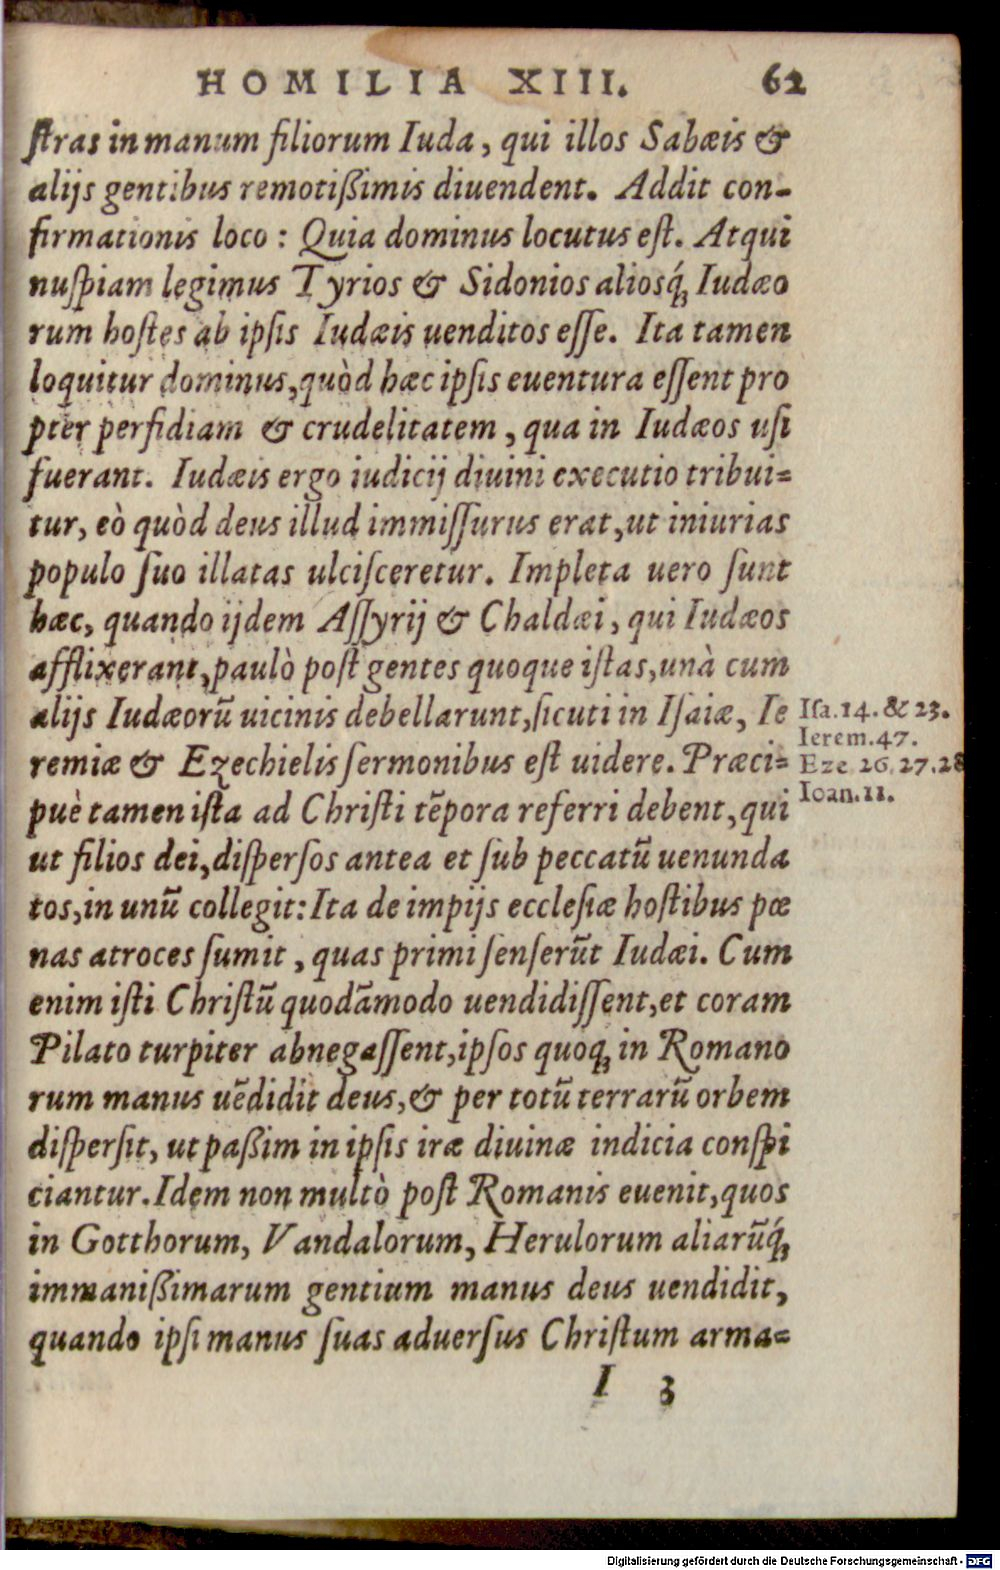 HOMILIA XIII. 62
ſtras in manum filiorum Iuda, qui illos Sabæis &
alijs gentibus remotißimis diuendent. Addit con-
firmationis loco: Quia dominus locutus eſt. Atqui
nuſpiam legimus Tyrios & Sidonios aliosq́; Iudæo
rum hoſtes ab ipſis Iudæis uenditos eſſe. Ita tamen
loquitur dominus, quòd hæc ipſis euentura eſſent pro
pter perfidiam & crudelitatem, qua in Iudæos uſi
fuerant. Iudæis ergo iudicij diuini executio tribui=
tur, eò quòd deus illud immiſſurus erat, ut iniurias
populo ſuo illatas ulciſceretur. Impleta uero ſunt
hæc, quando ijdem Aſſyrij & Chaldæi, qui Iudæos
afflixerant, paulò poſt gentes quoque iſtas, unà cum
alijs Iudæorũ uicinis debellarunt, ſicuti in Iſaiæ, Ie
remiæ & Ezechielis ſermonibus eſt uidere. Præci=
puè tamen iſta ad Chriſti tẽpora referri debent, qui
ut filios dei, diſperſos antea et ſub peccatũ uenunda
tos, in unũ collegit: Ita de impijs eccleſiæ hoſtibus pœ
nas atroces ſumit, quas primi ſenſerũt Iudæi. Cum
enim iſti Chriſtũ quodãmodo uendidiſſent, et coram
Pilato turpiter abnegaſſent, ipſos quoq; in Romano
rum manus uẽdidit deus, & per totũ terrarũ orbem
diſperſit, ut paßim in ipſis iræ diuinæ indicia conſpi
ciantur. Idem non multò poſt Romanis euenit, quos
in Gotthorum, Vandalorum, Herulorum aliarũq́;
immanißimarum gentium manus deus uendidit,
quando ipſi manus ſuas aduerſus Chriſtum arma=
I 3
Iſa.14. & 23.
Ierem.47.
Eze 26.27.28
Ioan.11.
Digitalisierung gefördert durch die Deutsche Forschungsgemeinschaft - DFG